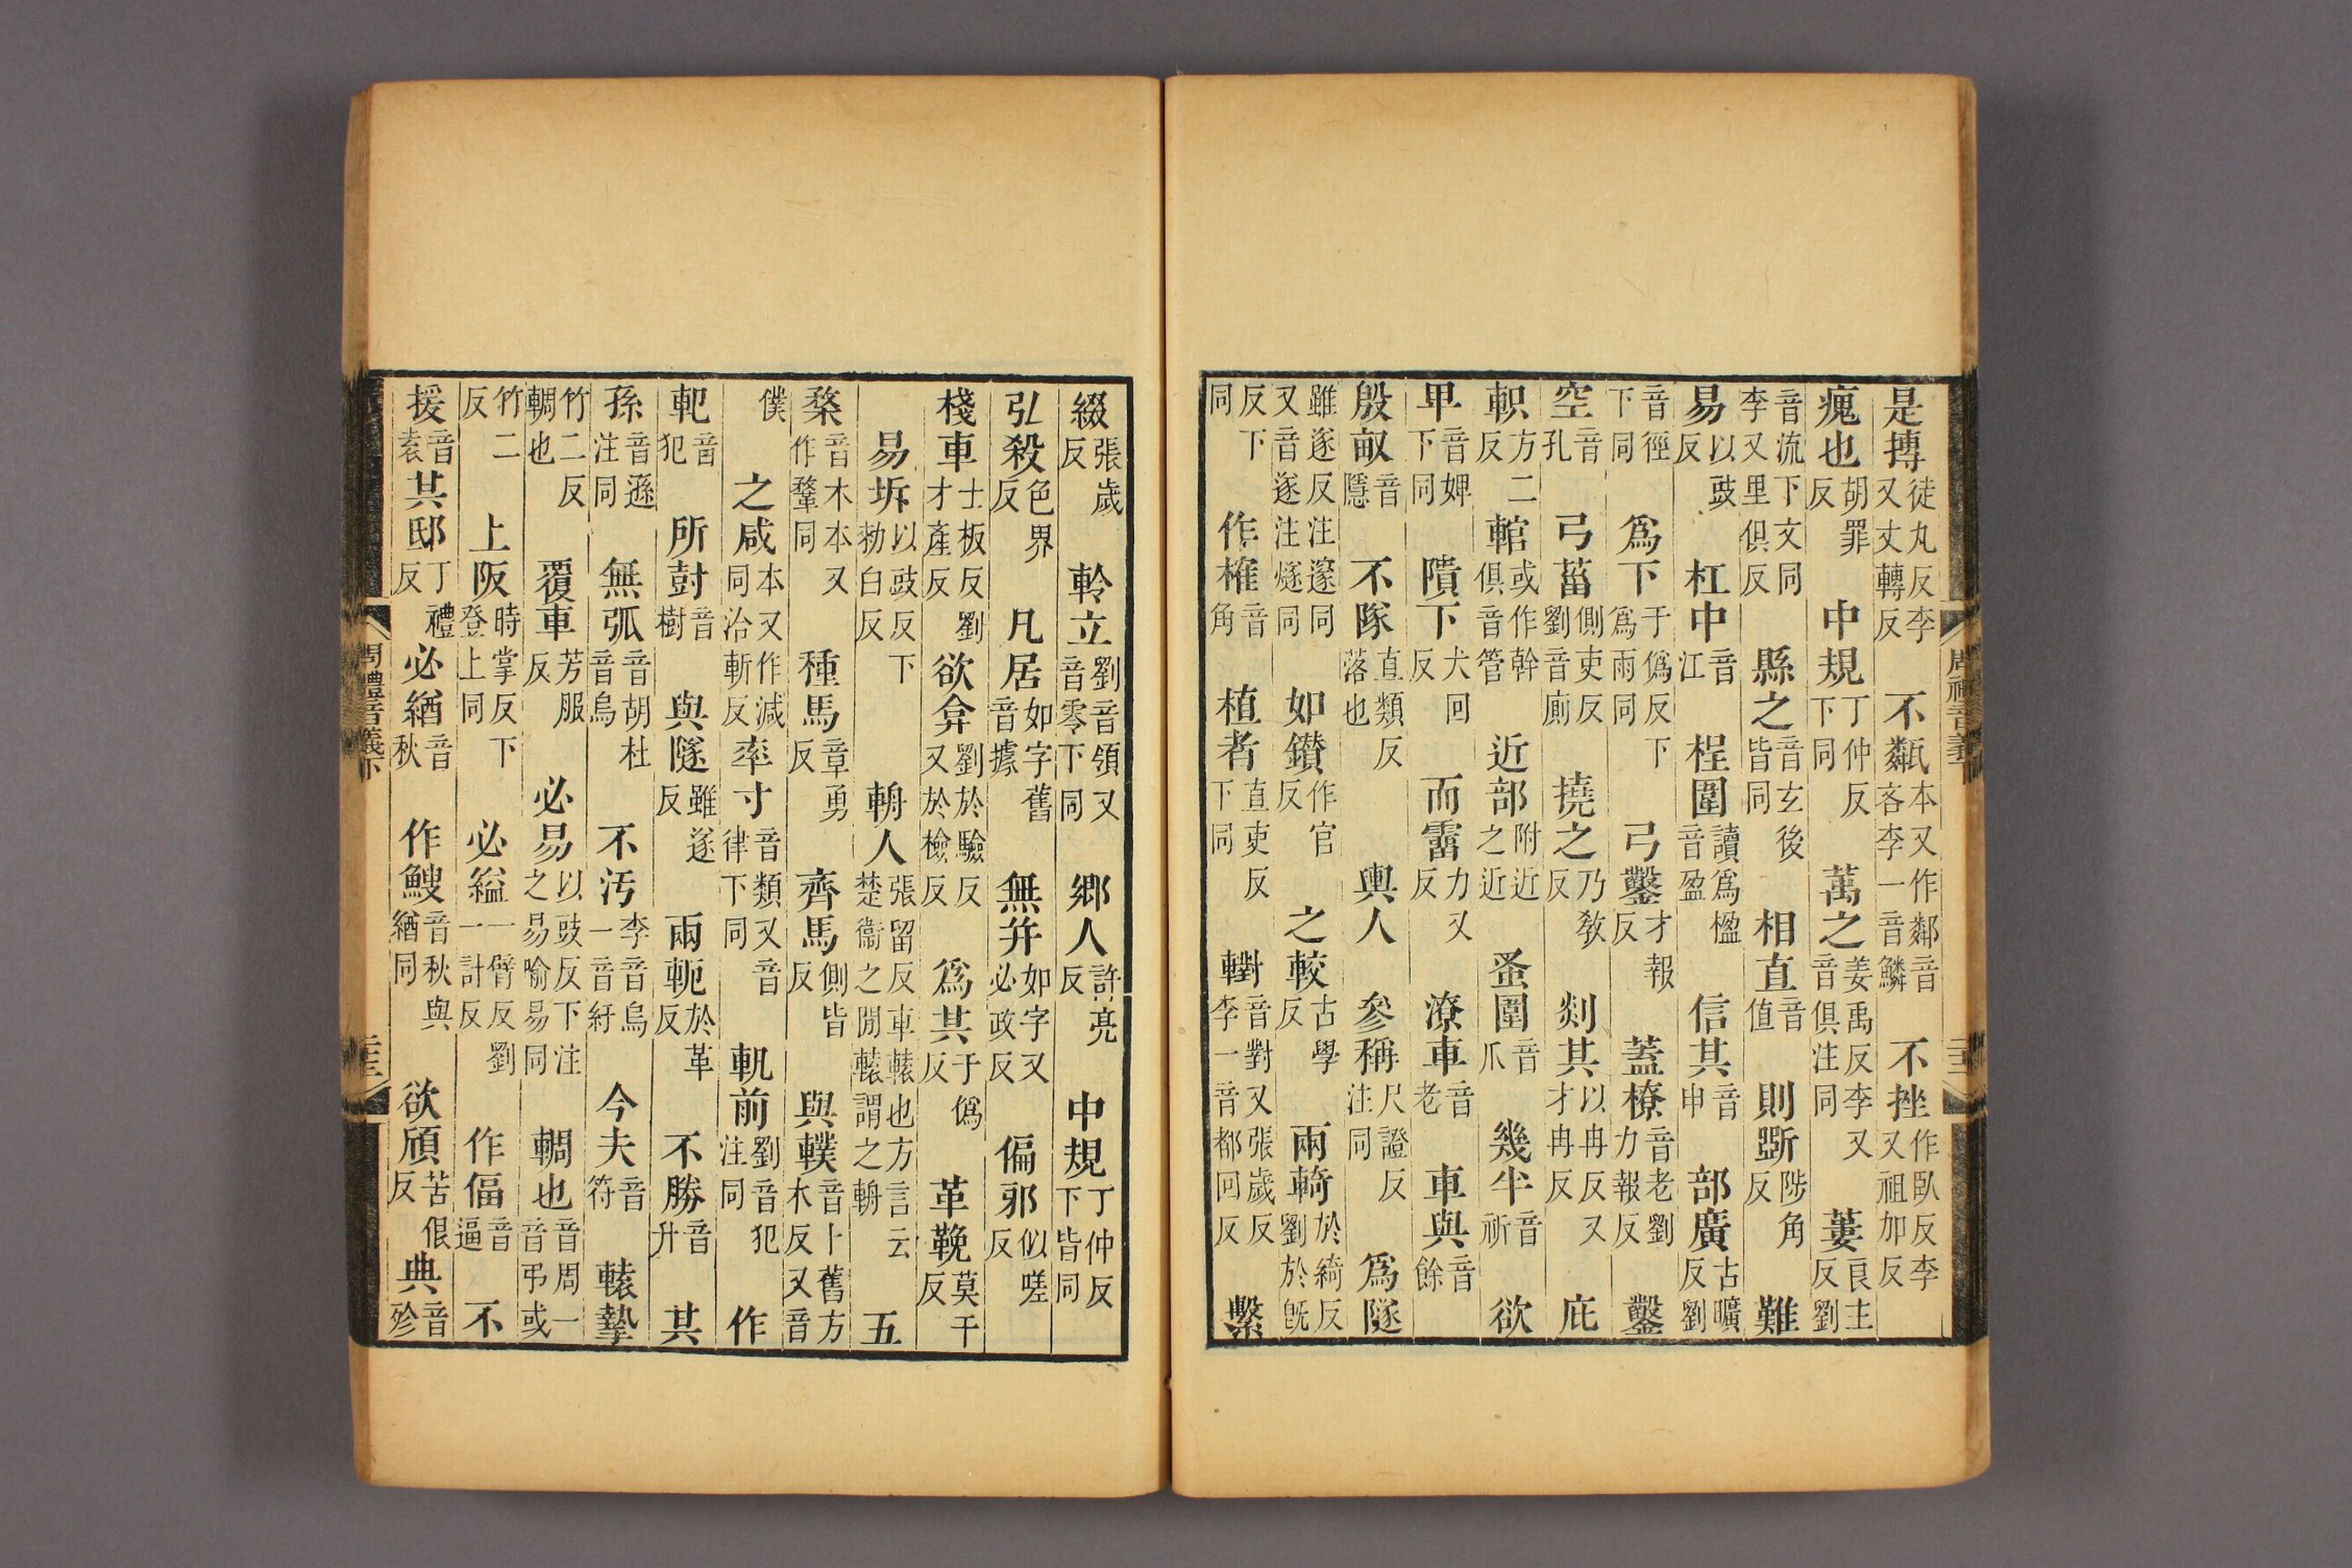 是摶徒丸反李又丈轉反不甐本又作鄰音吝李一音鱗不挫作臥反李又祖加反
瘣也胡罪反中規丁仲反下同萬之姜禹反李又音俱注同蔞良主反劉
音流下文同李又里俱反縣之音玄後皆同相直音值則斲陟角反難
易以豉反杠中音江桯圍讀爲楹音盈信其音申部廣古曠反劉
音徑下同爲下于僞反下爲雨同弓鑿才報反蓋橑音老劉力報反鑿
空音孔弓菑側吏反劉音廁撓之乃敎反剡其以冉反又才冉反庇
軹方二反輨或作幹俱音管近部附近之近蚤圍音爪幾半音祈欲
卑音婢下同隤下大回反而霤力又反潦車音老車與音餘
殷畝音隱不隊直類反落也輿人參稱尺證反注同爲隧
雖遂反注邃同又音遂注燧同如鑽作官反之較古學反兩輢於綺反劉於旣
反下同作榷音角植者直吏反下同轛音對又張歲反李一音都回反繫
周禮音義下
綴張歲反軨立劉音領又音零下同鄉人許亮反中規丁仲反下皆同
弘殺色界反凡居如字舊音據無幷如字又必政反偏邪似嗟反
棧車士板反劉才產反欲弇劉於驗反又於檢反爲其于僞反革鞔莫干反
易坼以豉反下勑白反輈人張留反車轅也方言云楚衞之閒轅謂之輈五
楘音木本又作鞪同種馬章勇反齊馬側皆反與轐音卜舊方木反又音
僕之咸本又作減同洽斬反率寸音類又音律下同軓前劉音犯注同作
軓音犯所尌音樹與隧雖遂反兩軛於革反不勝音升其
孫音遜注同無弧音胡杜音烏不汚李音烏一音紆今夫音符轅摯
竹二反輖也覆車芳服反必易以豉反下注之易喻易同輖也音周一音弔或
竹二反上阪時掌反下登上同必縊一臂反劉一計反作偪音逼不
援音袁其邸丁禮反必緧音秋作鰌音秋與緧同欲頎苦佷反典音殄
周禮音義下